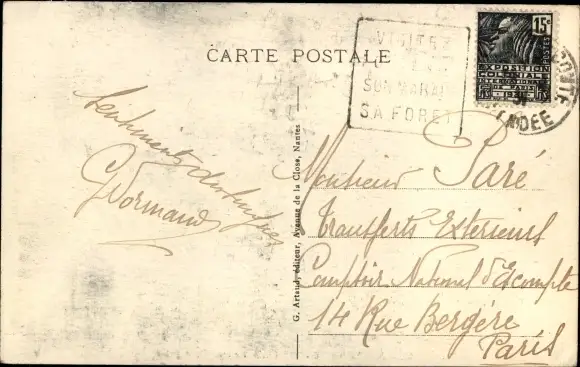 CARTE POSTALE
VISITEZ
SON MARAIS
SA FORET
15c
POSTES
EXPOSITION
COLONIALE
INTERNATIONALE
PARIS
1931
VENDEE
Sentiments distingués
G Normand
G. Artaud, éditeur, Avenue de la Close, Nantes
Monsieur Paré
Transferts Exterieurs
Comptoir National d'Escompte
14 Rue Bergère
Paris